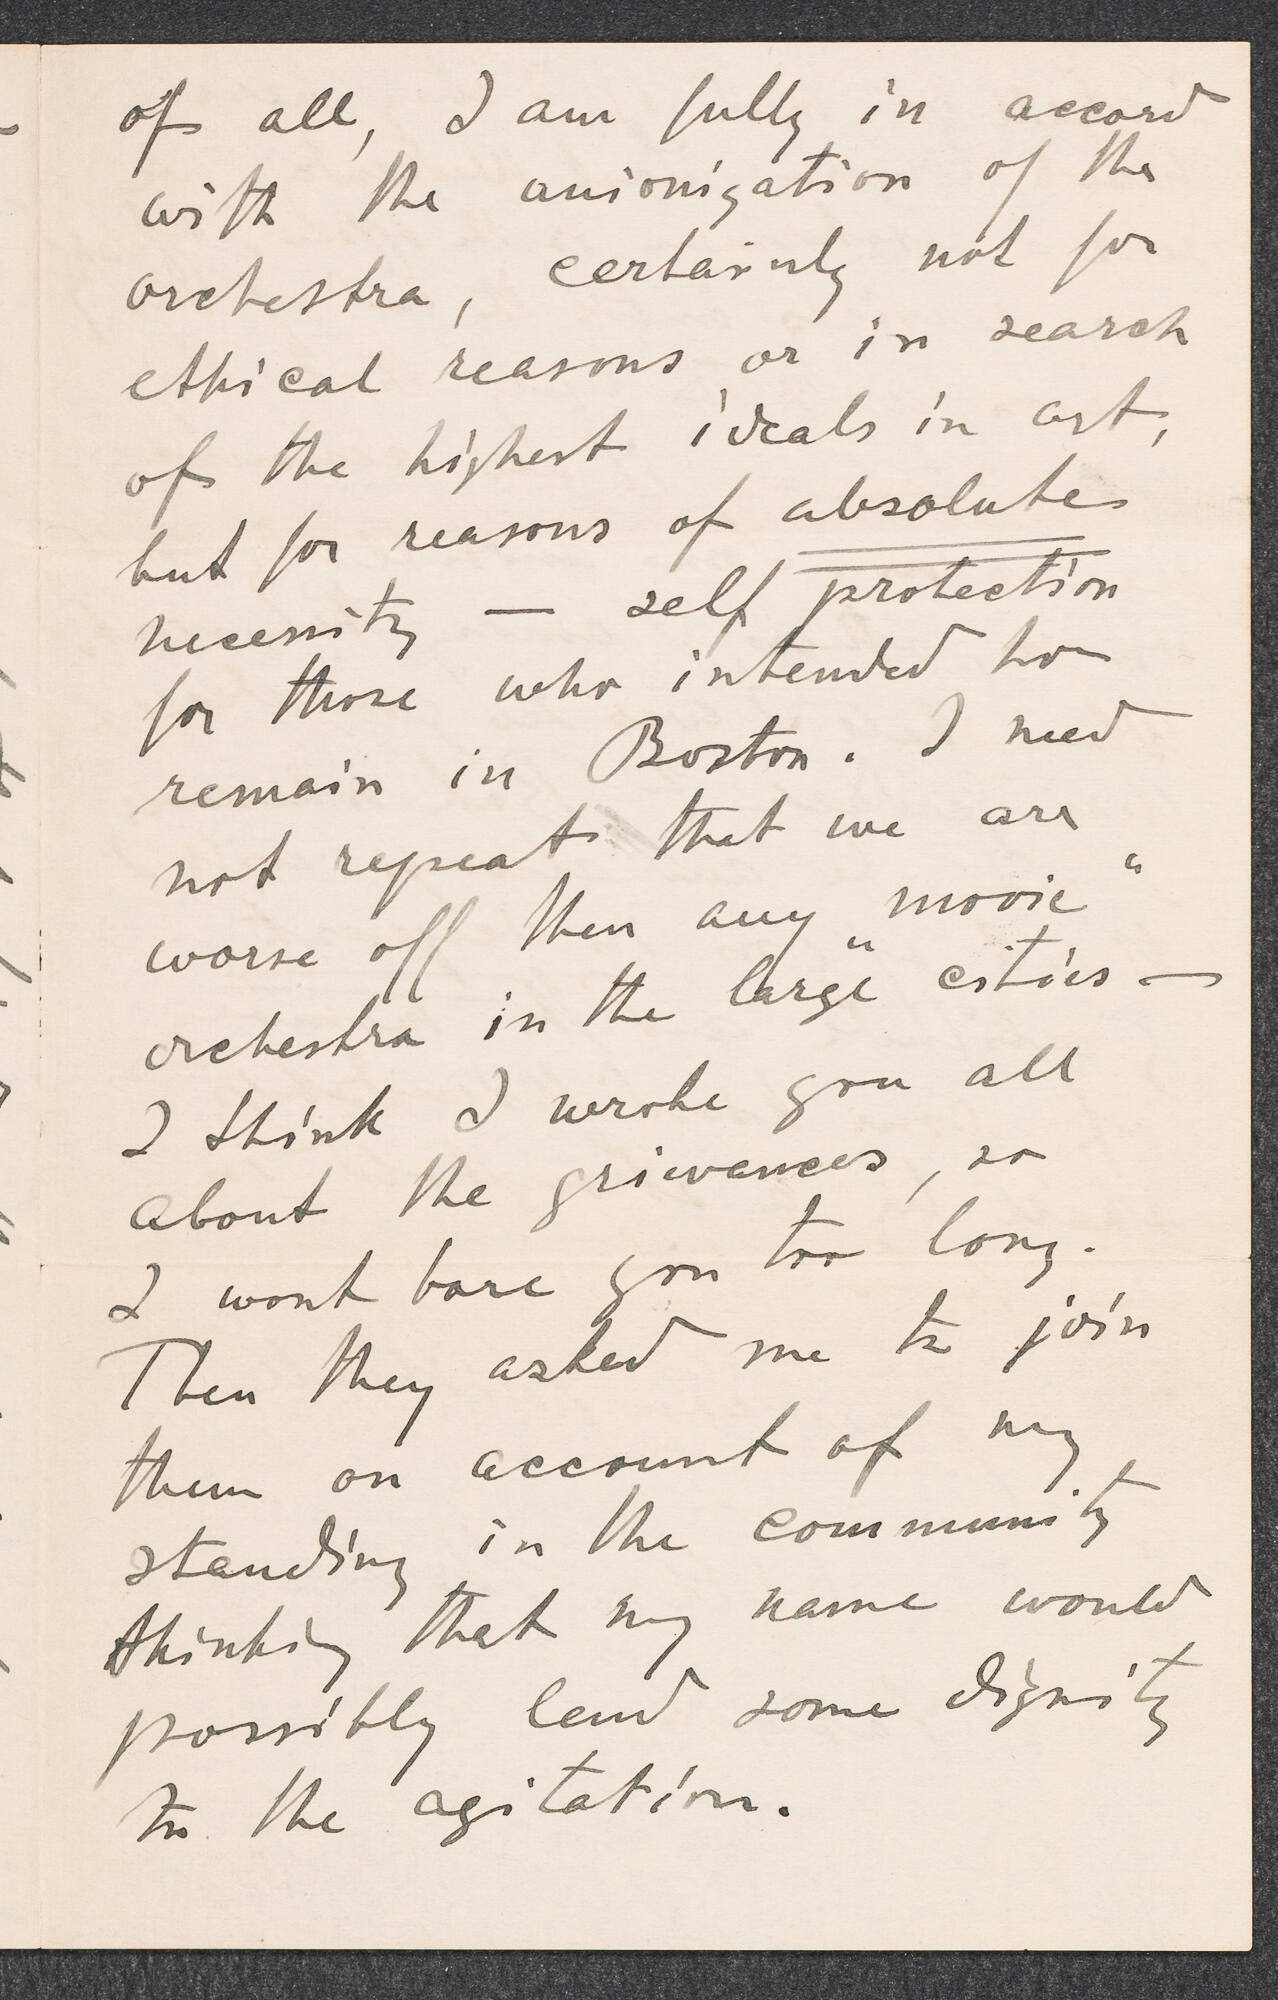 of all, I am fully in accord
with the unionization of the
orchestra, certainly not for
ethical reasons or in search
of the highest ideals in art,
but for reasons of absolute
necessity — self protection
for those who intended to
remain in Boston. I need
not repeat that we are
worse off then any "movie"
orchestra in the "large" cities —
I think I wrote you all
about the grievances, so
I wont bore you too long.
Then they asked me to join
them on account of my
standing in the community
thinking that my name would
possibly lend some dignity
to the agitation.